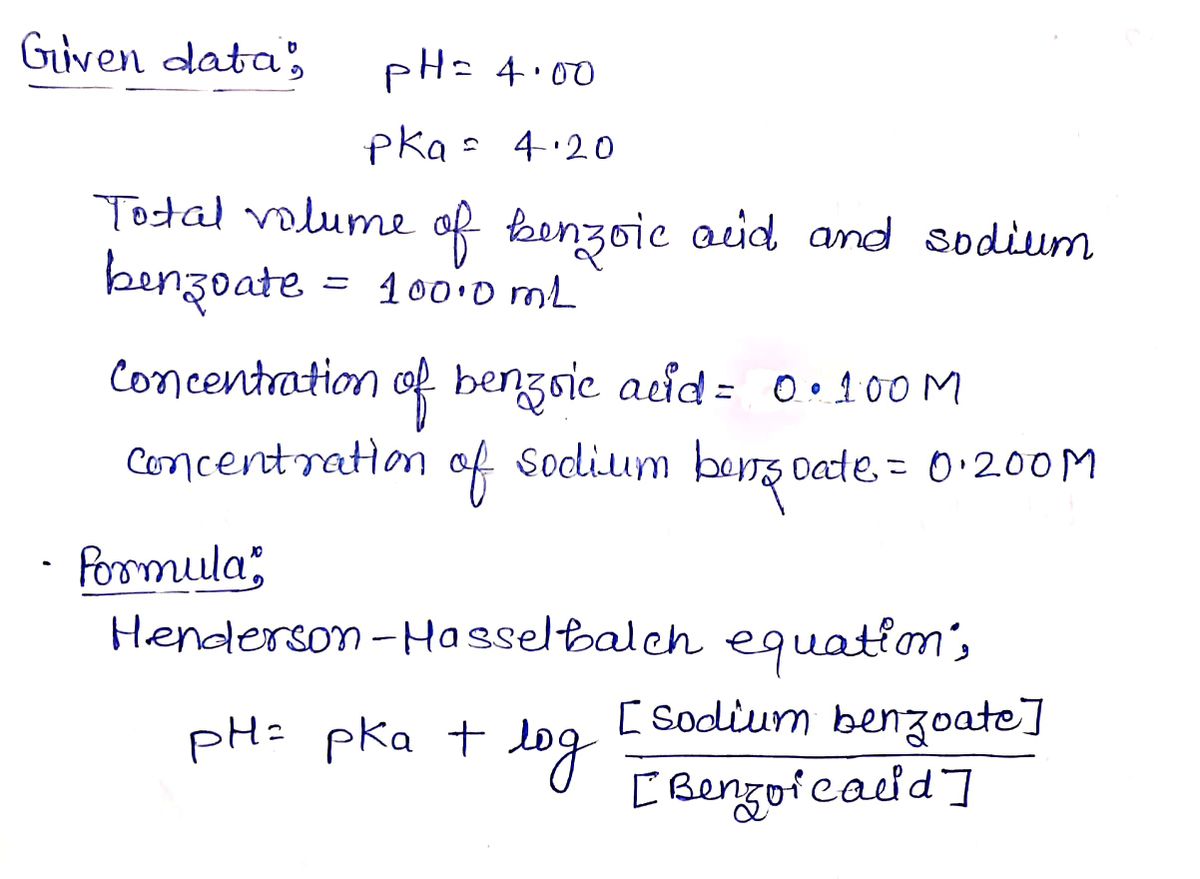 Given data:
pH = 4.00
pKa = 4.20
Total volume of benzoic acid and sodium
benzoate = 100.0 mL
Concentration of benzoic acid = 0.100 M
Concentration of sodium benzoate = 0.200 M
· Formula:
Henderson-Hasselbalch equation;
pH = pKa + log [Sodium benzoate] / [Benzoic acid]